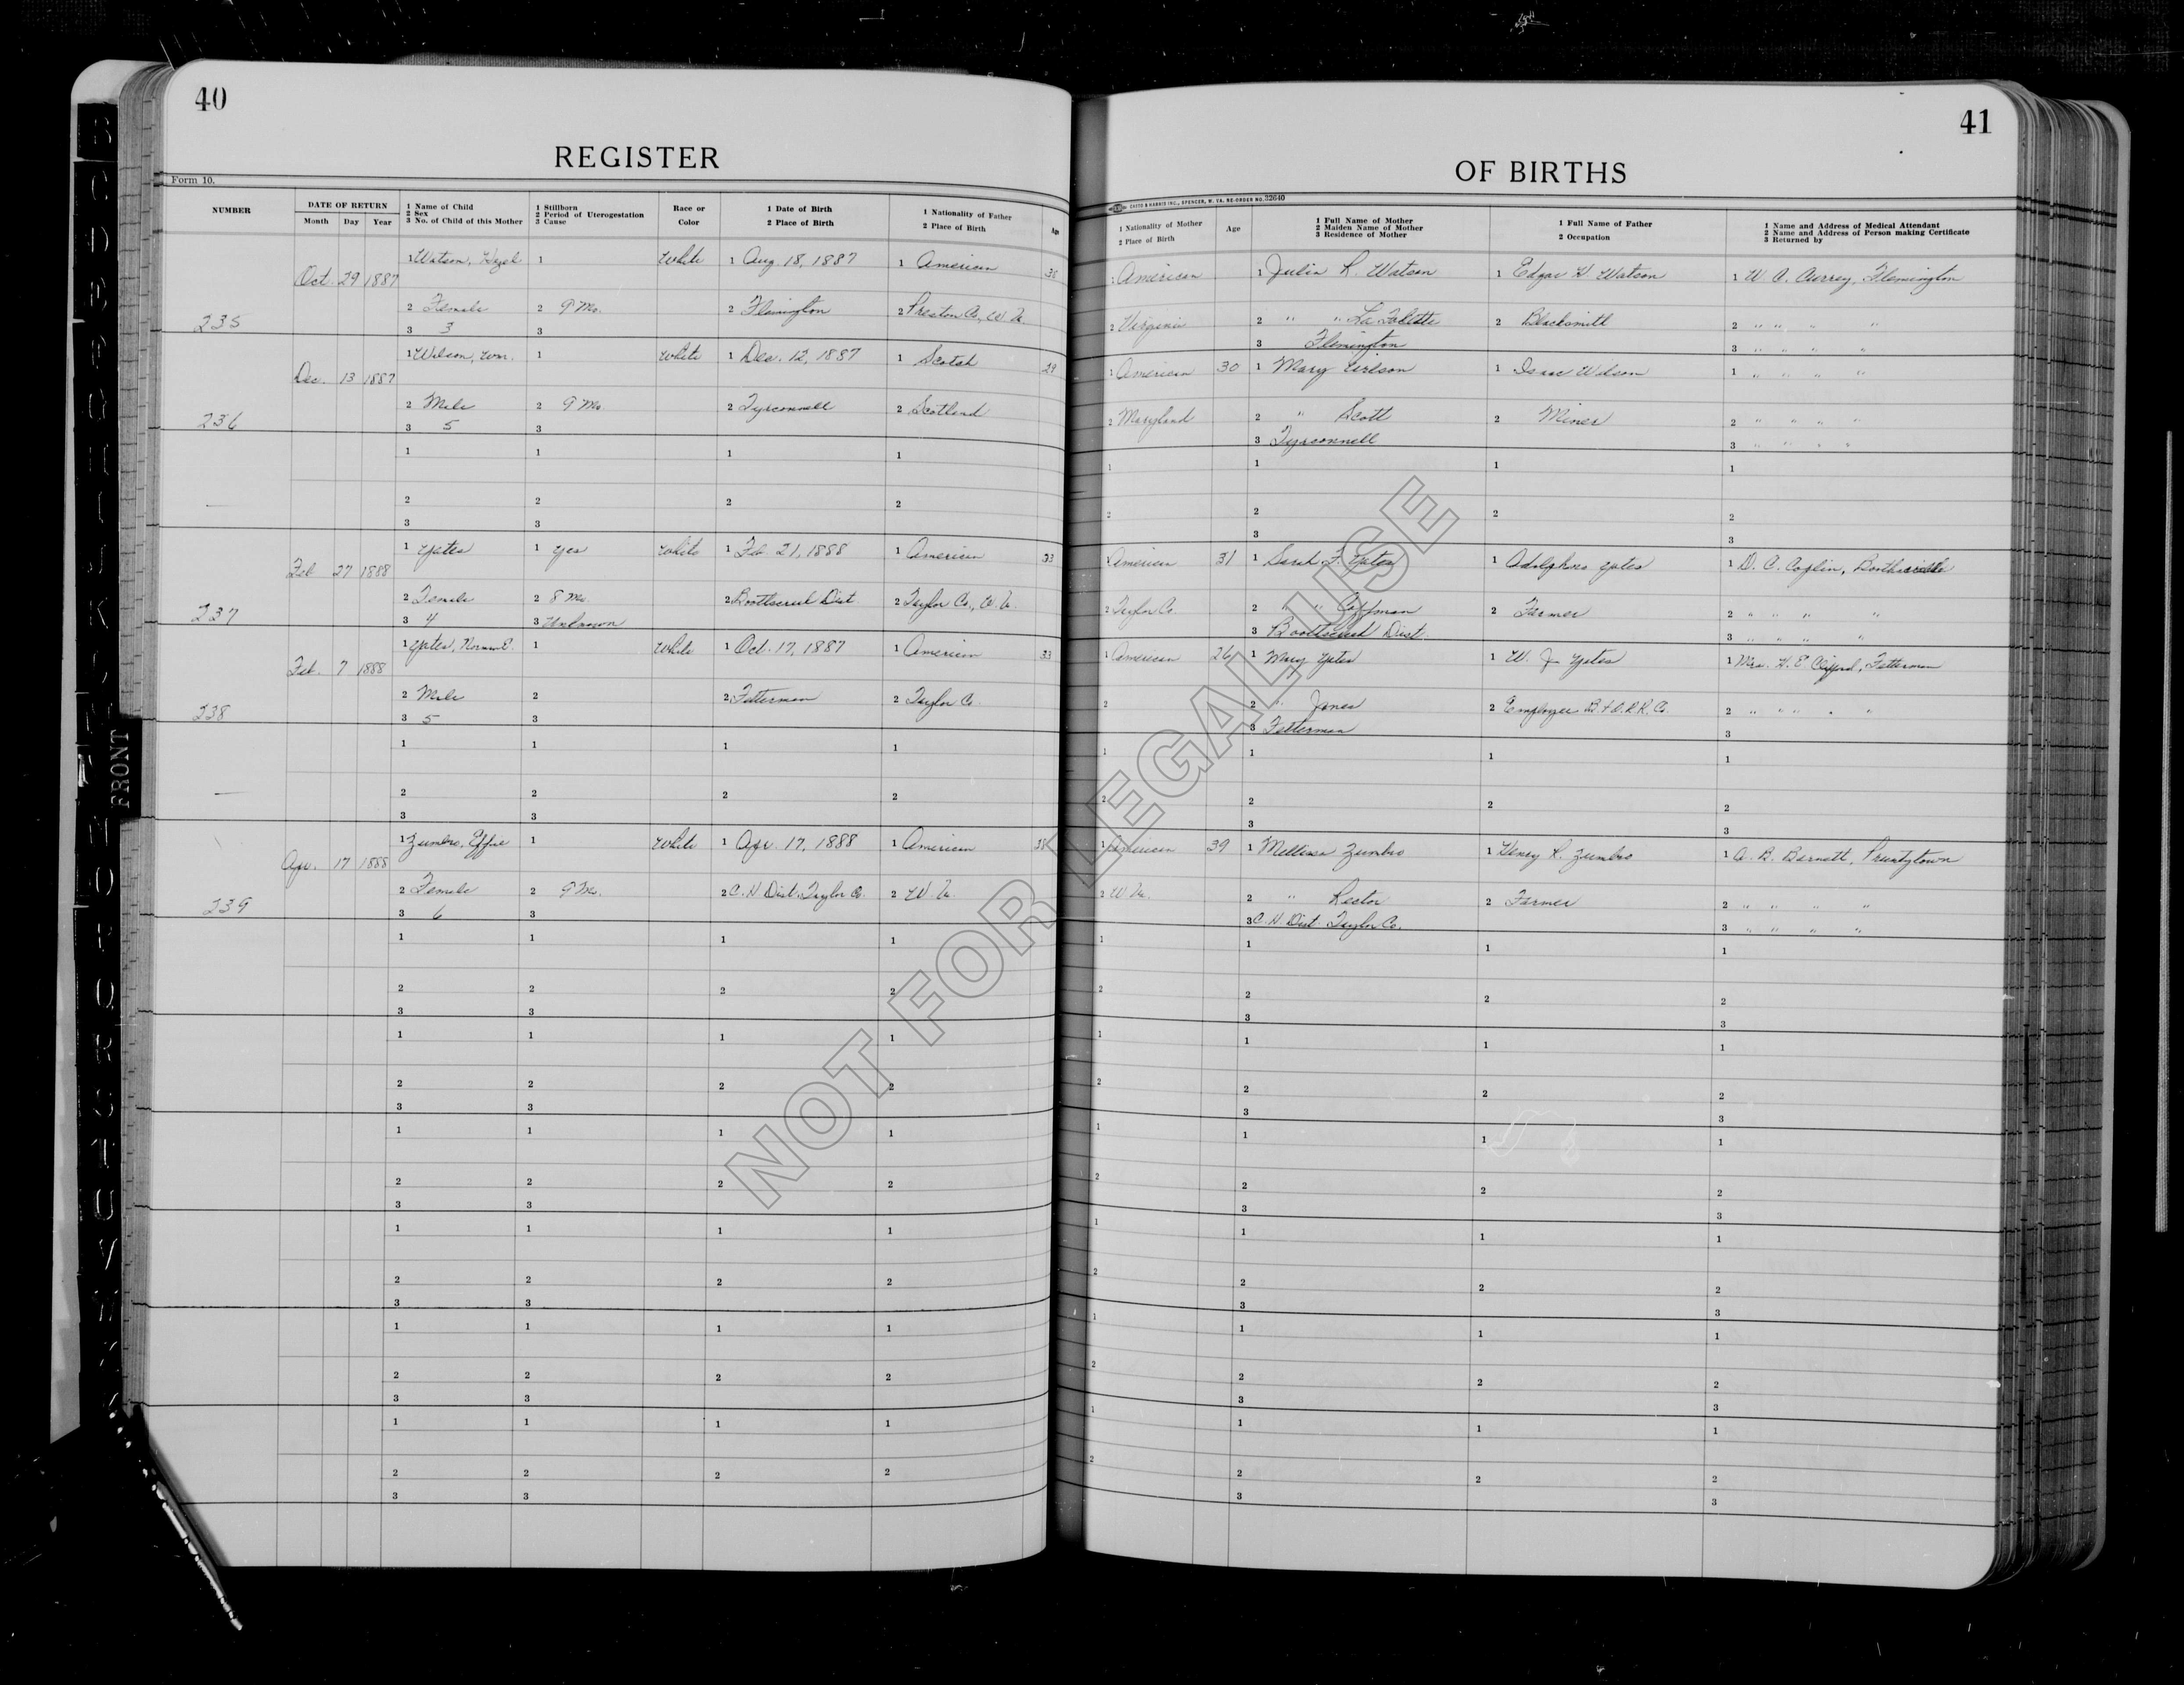 40
REGISTER
Form 10.
NUMBER
DATE OF RETURN
Month Day Year
1 Name of Child
2 Sex
3 No. of Child of this Mother
1 Stillborn
2 Period of Uterogestation
3 Cause
Race or
Color
1 Date of Birth
2 Place of Birth
1 Nationality of Father
2 Place of Birth
Age
235
Oct. 29 1887
1 Watson, Hazel 1 White 1 Aug. 18, 1887 1 American
2 Female 2 9 Mo. 2 Flemington 2 Preston Co., W. Va.
3 3 3
236
Dec. 13 1887
1 Wilson, Wm. 1 White 1 Dec. 12, 1887 1 Scotch 29
2 Male 2 9 Mo. 2 Tyrconnell 2 Scotland
3 5 3
1 1 1 1
2 2 2 2
3 3
237
Feb 27 1888
1 Yates 1 Yes White 1 Feb. 21, 1888 1 American 33
2 Female 2 8 Mo. 2 Dist. 2 Taylor Co., W. Va.
3 4 3 Unknown
238
Feb. 7 1888
1 Yates, 1 White 1 Oct. 17, 1887 1 American 33
2 Male 2 2 Fetterman 2 Taylor Co.
3 5 3
1 1 1 1
2 2 2 2
3 3
239
Apr. 17 1888
1 Zumbro, Effie 1 White 1 Apr. 17, 1888 1 American
2 Female 2 9 Mo. 2 C. H. Dist. Taylor Co. 2 W. Va.
3 6 3
1 1 1 1
2 2 2 2
3 3
1 1 1 1
2 2 2 2
3 3
1 1 1 1
2 2 2 2
3 3
1 1 1 1
2 2 2 2
3 3
1 1 1 1
2 2 2 2
3 3
1 1 1 1
2 2 2 2
3 3
41
OF BIRTHS
CASTO & HARRIS INC., SPENCER, W. VA. RE-ORDER NO. 32640
1 Nationality of Mother
2 Place of Birth
Age
1 Full Name of Mother
2 Maiden Name of Mother
3 Residence of Mother
1 Full Name of Father
2 Occupation
1 Name and Address of Medical Attendant
2 Name and Address of Person making Certificate
3 Returned by
1 American 1 Julia L. Watson 1 Edgar H. Watson 1 W. A. Currey, Flemington
2 Virginia 2 " " La Follette 2 Blacksmith 2 " " " "
3 Flemington 3 " " " "
1 American 30 1 Mary Wilson 1 Isaac Wilson 1 " " " "
2 Maryland 2 " Scott 2 Miner 2 " " " "
3 Tyrconnell 3 " " " "
1 1 1 1
2 2 2 2
3 3
1 American 31 1 Sarah F. Yates 1 Adolphus Yates 1 D. C. Boothsville
2 Taylor Co. 2 " " Coffman 2 Farmer 2 " " " "
3 Dist. 3 " " " "
1 American 26 1 Mary Yates 1 W. J. Yates 1 Mrs. H. E. Clifford, Fetterman
2 2 " Jones 2 Employee B. & O. R. R. Co. 2 " " " " "
3 Fetterman 3
1 1 1 1
2 2 2 2
3 3
1 American 39 1 Mellissa Zumbro 1 Henry L. Zumbro 1 A. B. Barnett, Pruntytown
2 W. Va. 2 " Lester 2 Farmer 2 " " " "
3 C. H. Dist. Taylor Co. 3 " " " "
1 1 1 1
2 2 2 2
3 3
1 1 1 1
2 2 2 2
3 3
1 1 1 1
2 2 2 2
3 3
1 1 1 1
2 2 2 2
3 3
1 1 1 1
2 2 2 2
3 3
1 1 1 1
2 2 2 2
3 3
NOT FOR LEGAL USE
FRONT